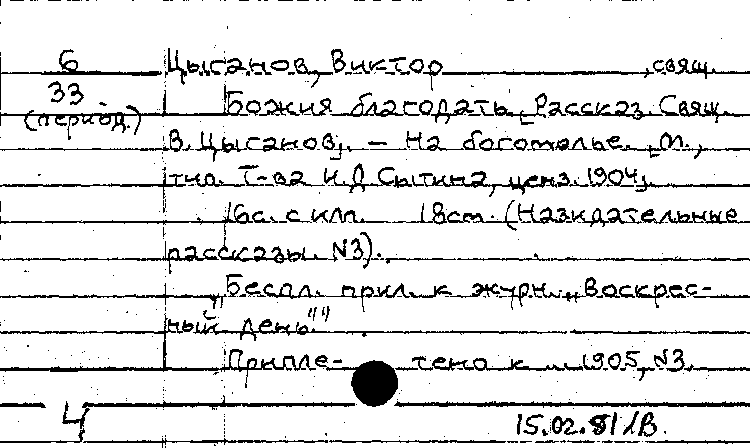 6
33
(период.)
Цыганов, Виктор , свящ.
Божия благодать. [Рассказ. Свящ.
В. Цыганов]. — На богомолье. [М.,
тип. Т-ва И.Д Сытина, ценз. 1904].
16с. с илл. 18см. (Назидательные
рассказы. N3).
"Беспл. прил. к журн. "Воскрес-
ный день""
Припле- тено к ... 1905, N3.
Ц
15.02.81/В.